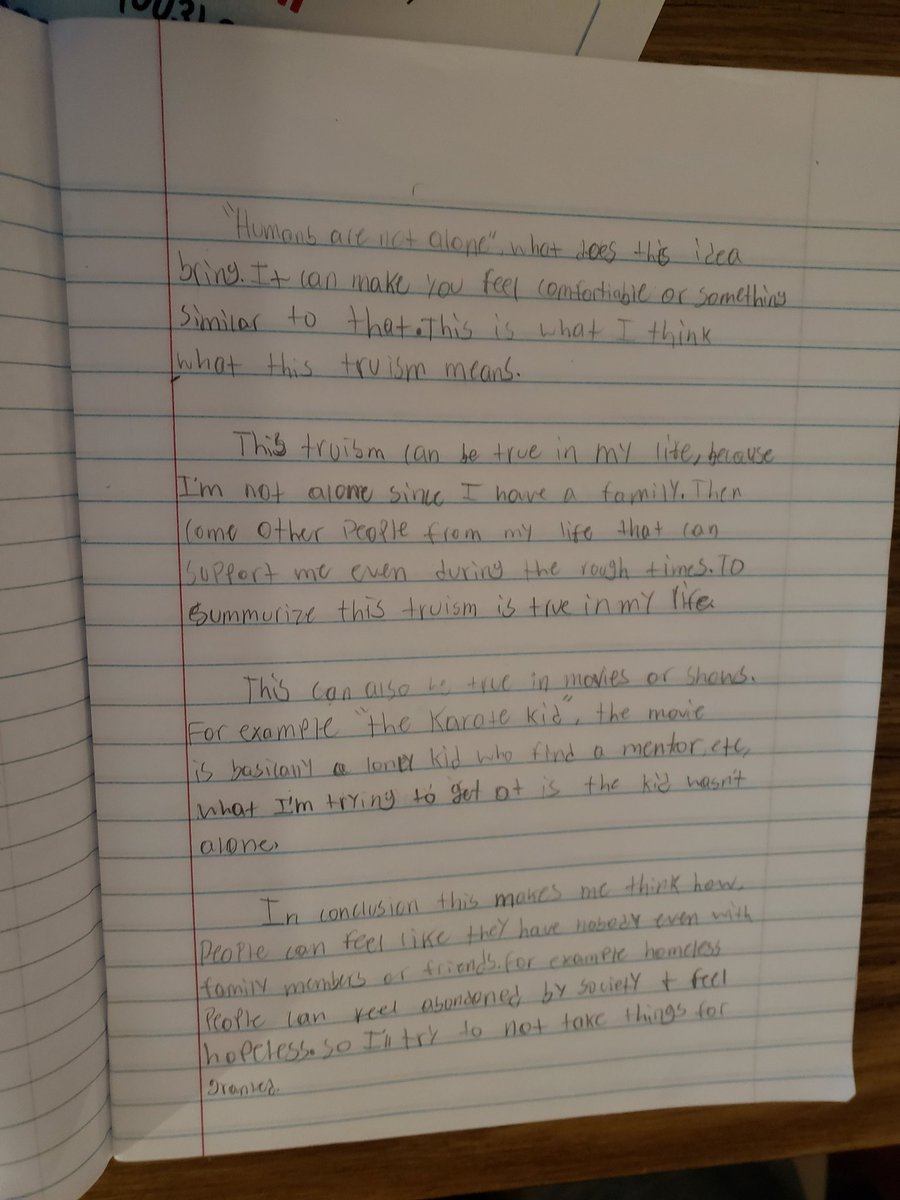 10031
"Humans are not alone", what does this idea
bring. It can make you feel comfortiable or something
similar to that. This is what I think
what this truism means.
This truism can be true in my life, because
I'm not alone since I have a family. Then
come other people from my life that can
support me even during the rough times. To
summurize this truism is true in my life.
This can also be true in movies or shows.
For example "the Karate kid", the movie
is basically a loner kid who find a mentor, etc,
what I'm trying to get at is the kid wasn't
alone.
In conclusion this makes me think how
people can feel like they have nobody even with
family members or friends. for example homeless
people can feel abandoned by society + feel
hopeless. so I'll try to not take things for
granted.